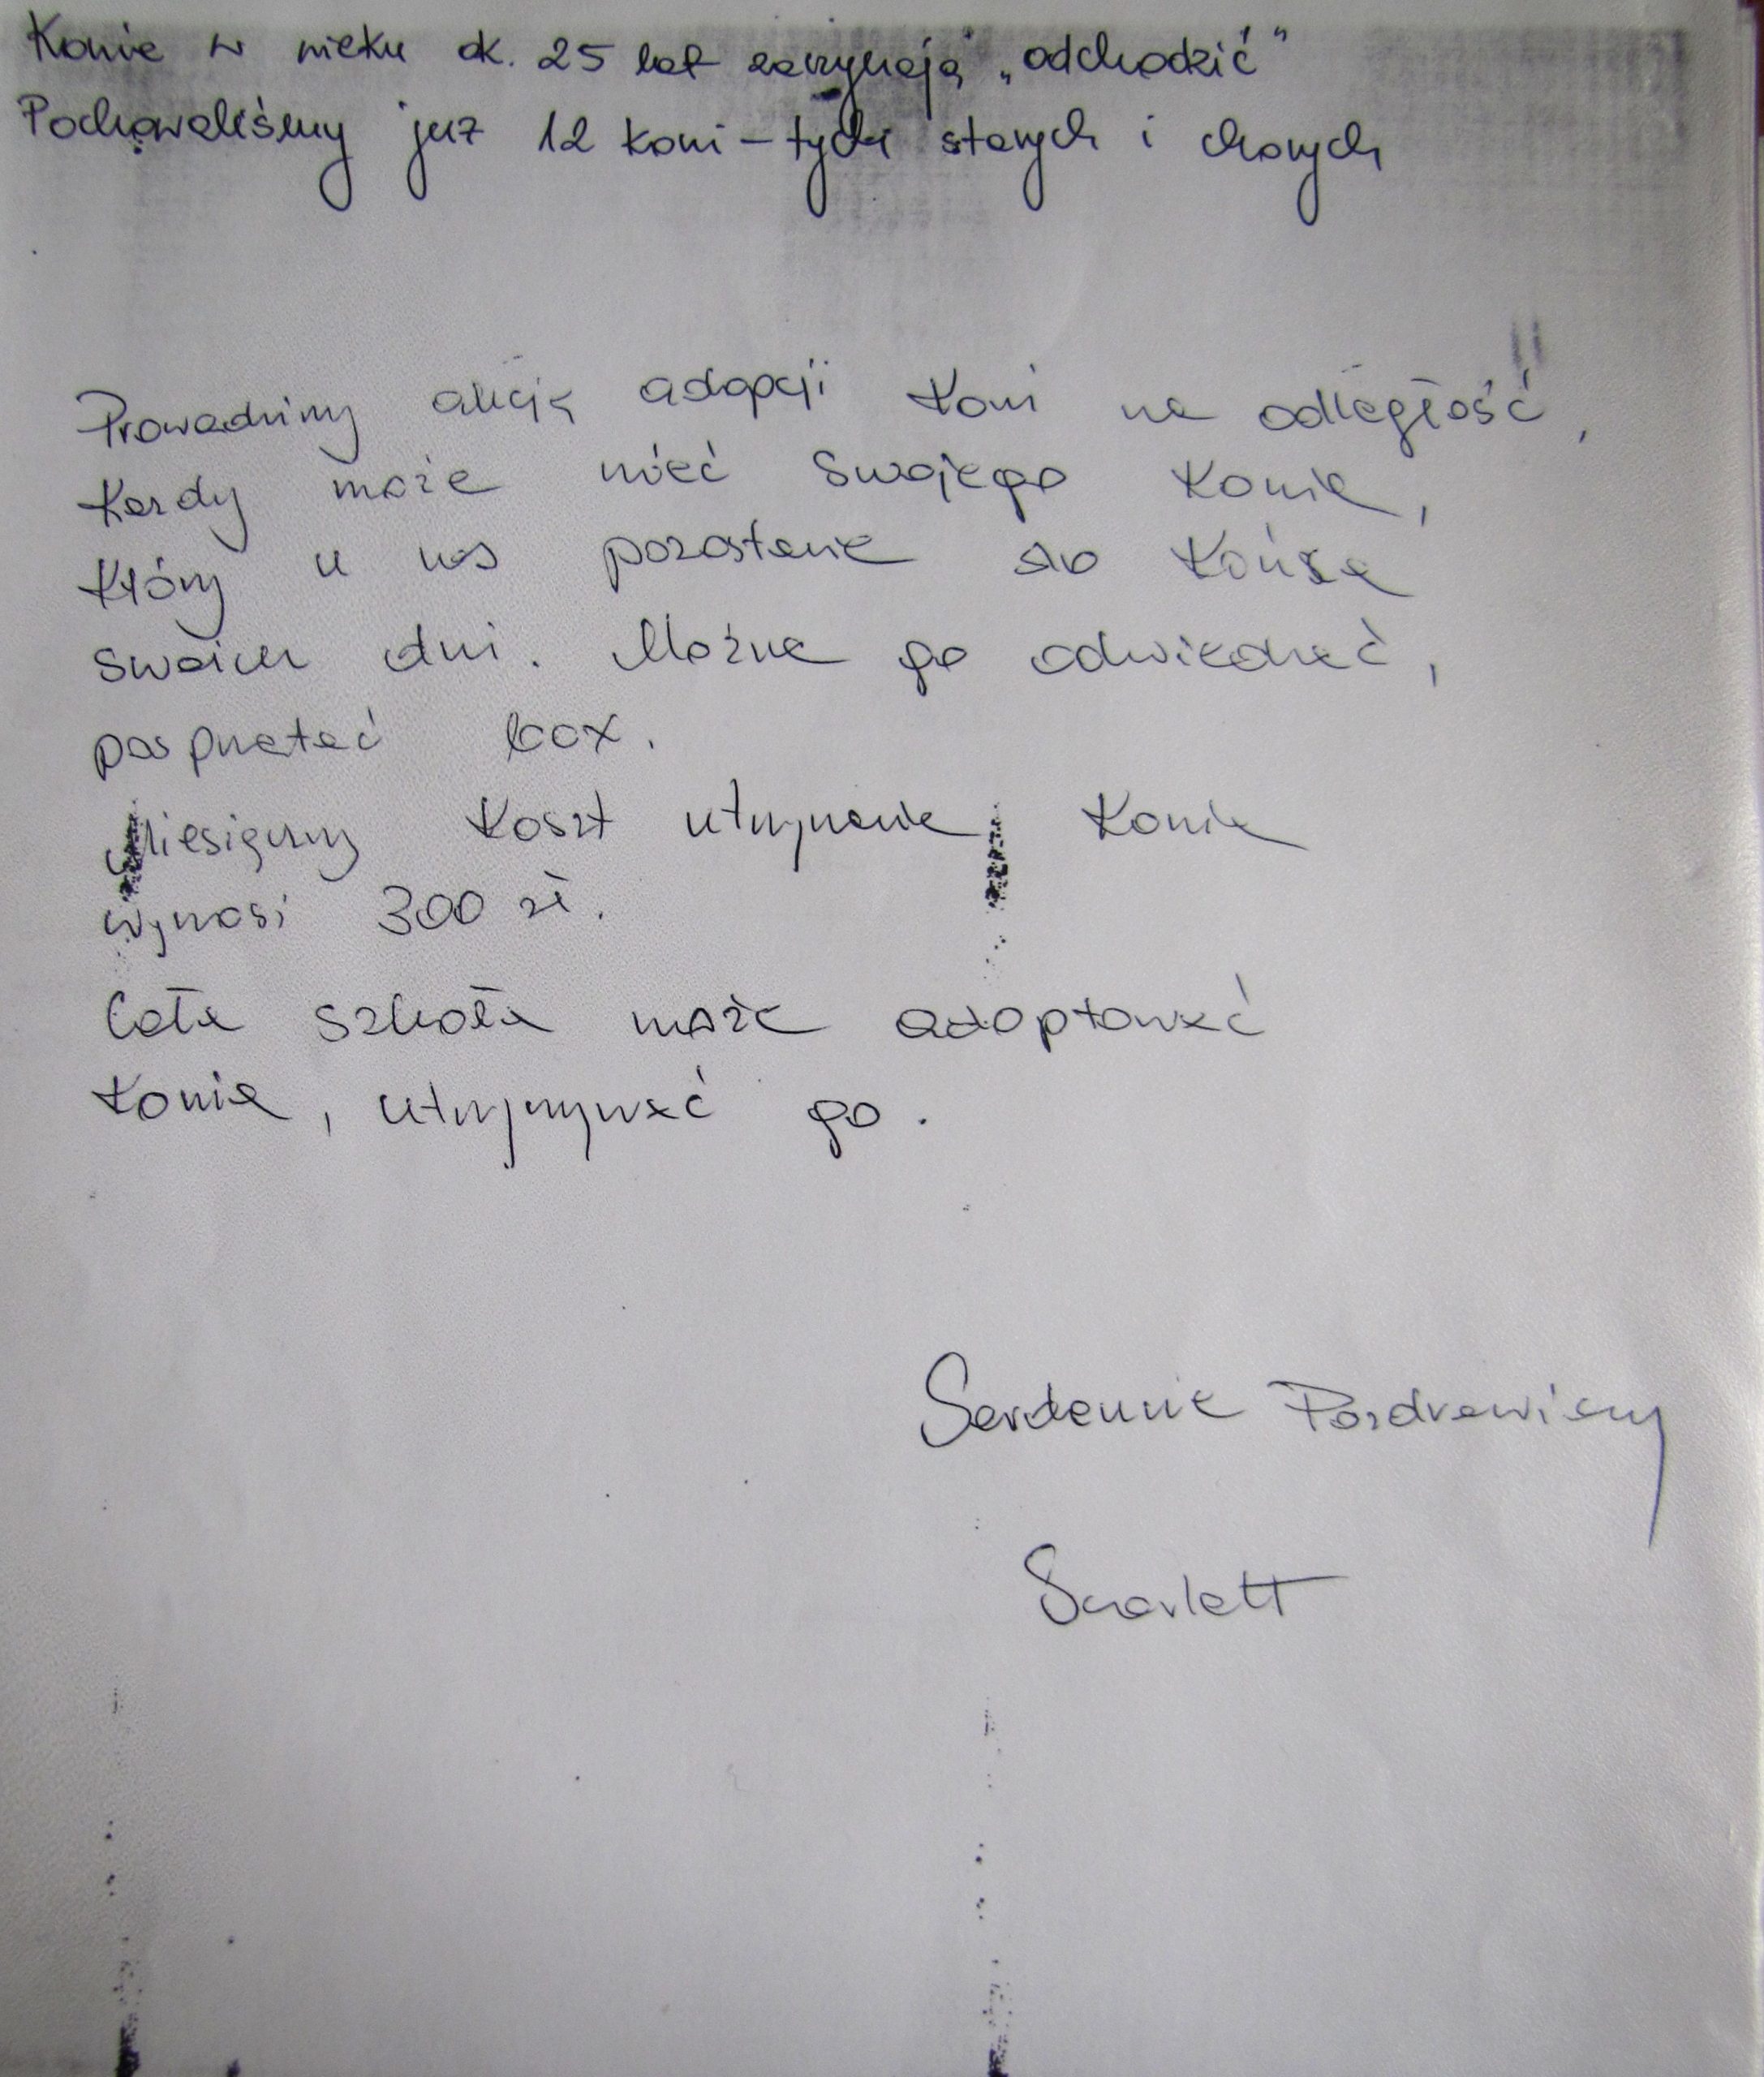 Konie w wieku ok. 25 lat zaczynają „odchodzić"
Pochowaliśmy już 12 koni - tych starych i chorych
Prowadzimy akcję adopcji koni na odległość,
Każdy może mieć swojego konia,
który u nas pozostanie do końca
swoich dni. Można go odwiedzać,
posprzątać box.
Miesięczny koszt utrzymania konia
wynosi 300 zł.
Cała szkoła może adoptować
konia, utrzymywać go.
Serdecznie Pozdrawiamy
Scarlett